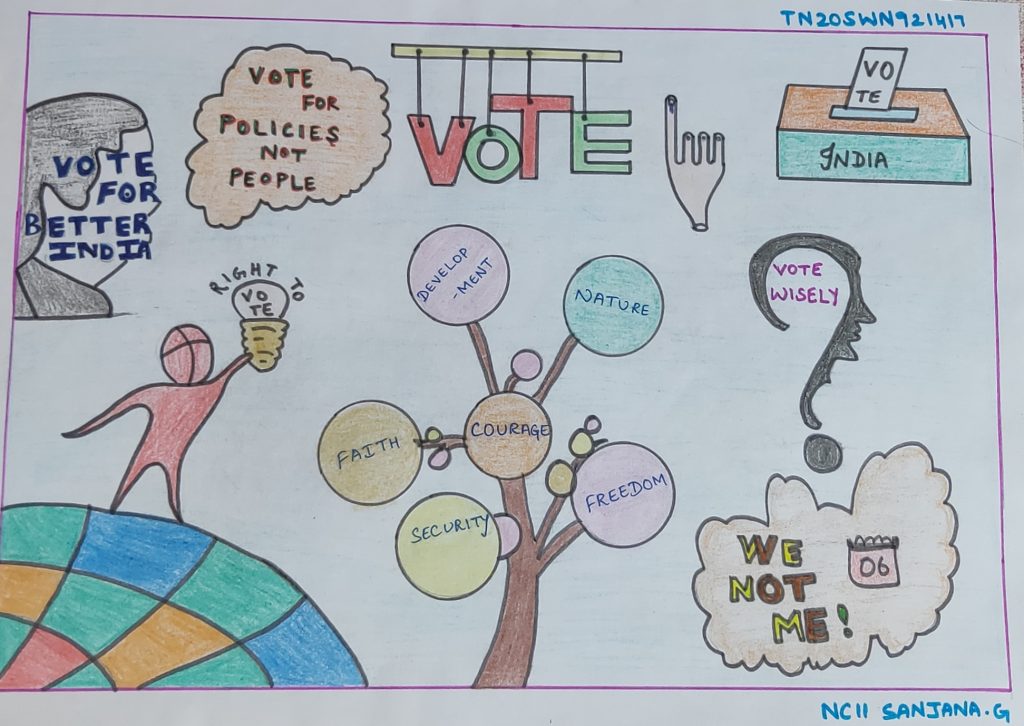 TN20SWN921417
VOTE
FOR
POLICIES
NOT
PEOPLE
VOTE
VO
TE
INDIA
VOTE
FOR
BETTER
INDIA
RIGHT TO
VO
TE
DEVELOP
-MENT
NATURE
VOTE
WISELY
FAITH
COURAGE
SECURITY
FREEDOM
WE
NOT
ME!
06
NC11 SANJANA.G